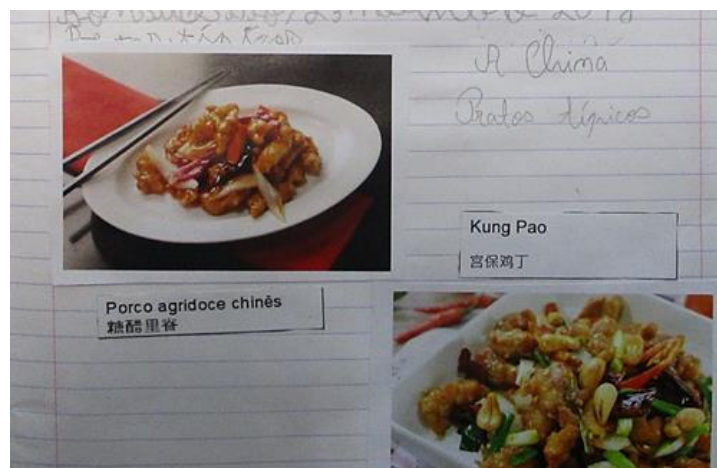 A China
Pratos típicos
Kung Pao
宫保鸡丁
Porco agridoce chinês
糖醋里脊